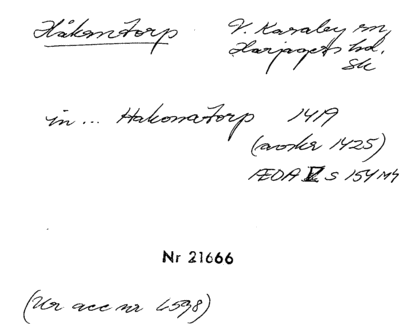 Håkantorp V. Karaby sn,
Harjagers hd.
Sk
in... Hakonatorp 1419
(avskr 1425)
ÆDA V s 154 M4
Nr 21666
(Ur acc nr 4598)